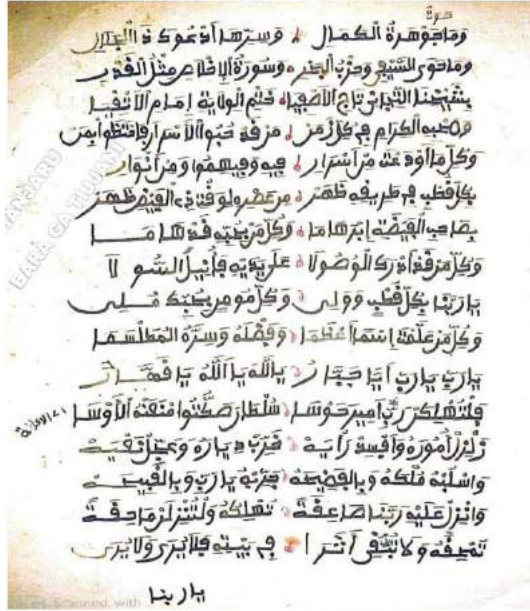 حوىٰ
وما جوهرة الكمال وسرها أدعوك ذا الجلال
وما حوى السيفي وحزب البحر وسورة الإخلاص مثل القدر
بشيخنا التجاني تاج الأصفيا ختم الولاية إمام الأتقيا
وصحبه الكرام في كل زمن من قد حبوا الأسرار
وكل ما أودعت من أسرار فيه وفيهموا ومن أنوار
بكل قطب في طريقه ظهر من عصره لوقت ذي الفيض ظهر
بصاحب الفيضة إبرهاما وكل من بحبه قد هاما
وكل من قد أدرك الوصولا على يديه فاقبل السولا
يا ربنا بكل قطب وولي وكل مومن يحبك
وكل من علمته اسما أعظما وفضله وسره المطلسما
يا رب يا رب أيا جبار يا الله يا الله يا قهار
فلتهلكن رب أمير حوسا سلطان صكتوا
زلزل أموره وأفسد رأيه خرب دياره وعجل
واسلبه ملكه وبالفضيحة جربه يا رب وبالقبيحة
وانزل عليه ربنا صاعقة تهلكه ولتنزلن ماحقة
تمحقه ولا تبقي أثرا في بيته فلا يرى ولا يرى
يا ربنا
BARAGA TIJJANI
Scanned with